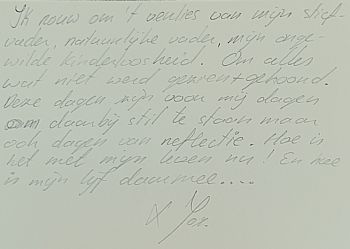 Ik rouw om 't verlies van mijn stief-
vader, natuurlijke vader, mijn onge-
wilde kinderloosheid. Om alles
wat niet werd gezien + gehoord.
Deze dagen zijn voor mij dagen
om daarbij stil te staan maar
ook dagen van reflectie. Hoe is
het met mijn leven nu! En hoe
is mijn lijf daarmee....
X